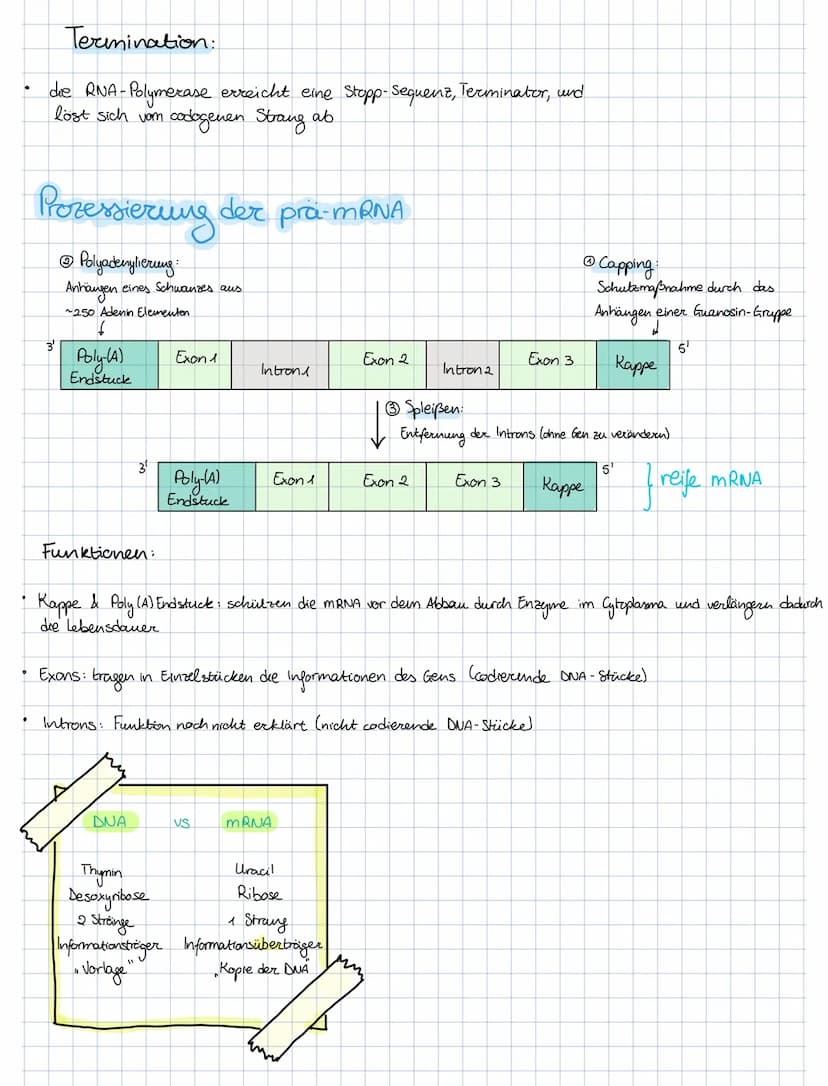 Termination:
• die RNA-Polymerase erreicht eine Stopp-Sequenz, Terminator, und
löst sich vom codogenen Strang ab
Prozessierung der prä-mRNA
② Polyadenylierung:
Anhängen eines Schwanzes aus
~250 Adenin Elementen
① Capping:
Schutzmaßnahme durch das
Anhängen einer Guanosin-Gruppe
3' Poly-(A) Endstück Exon 1 Intron 1 Exon 2 Intron 2 Exon 3 Kappe 5'
③ Spleißen:
Entfernung der Introns (ohne Gen zu verändern)
3' Poly-(A) Endstück Exon 1 Exon 2 Exon 3 Kappe 5' } reife mRNA
Funktionen:
• Kappe & Poly(A) Endstück: schützen die mRNA vor dem Abbau durch Enzyme im Cytoplasma und verlängern dadurch
die Lebensdauer
• Exons: tragen in Einzelstücken die Informationen des Gens (codierende DNA-Stücke)
• Introns: Funktion noch nicht erklärt (nicht codierende DNA-Stücke)
DNA vs mRNA
Thymin Uracil
Desoxyribose Ribose
2 Stränge 1 Strang
Informationsträger Informationsüberträger
„Vorlage" „Kopie der DNA"